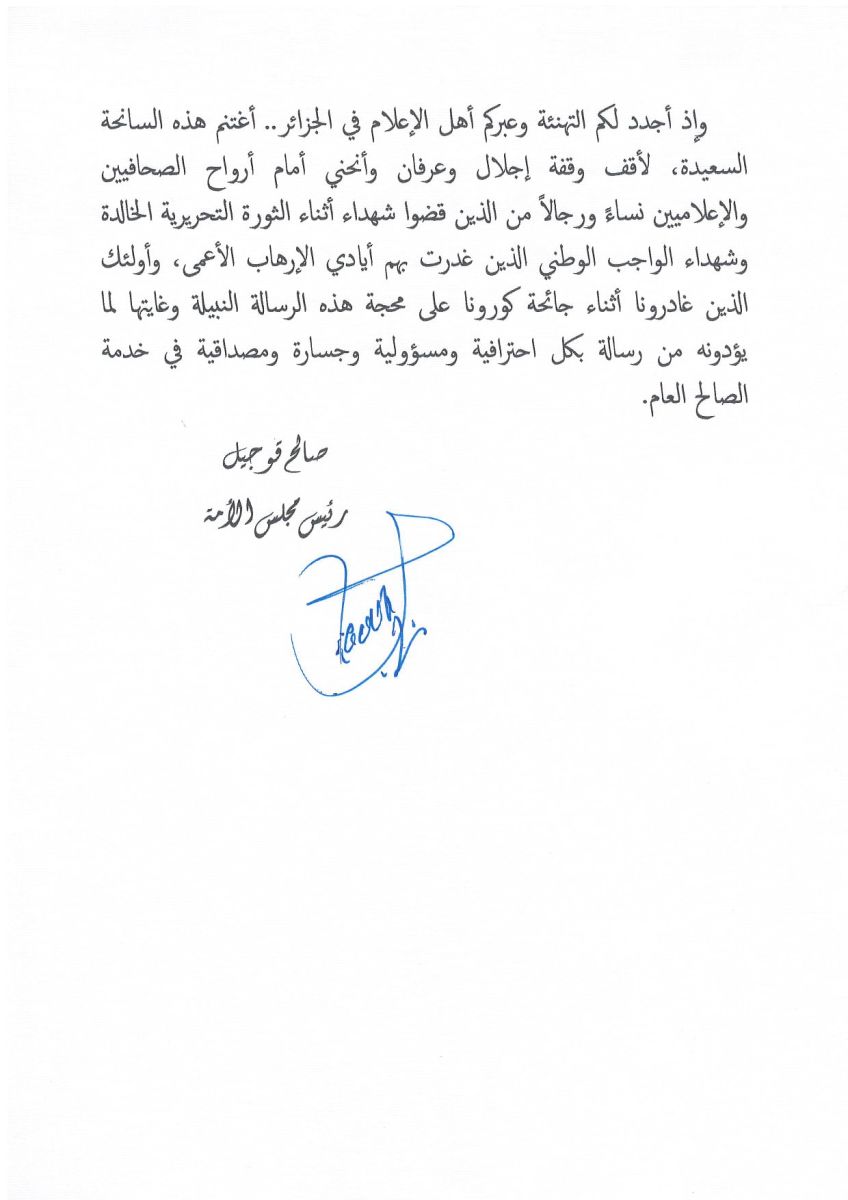 وإذ أجدد لكم التهنئة وعبركم أهل الإعلام في الجزائر.. أغتنم هذه السانحة
السعيدة، لأقف وقفة إجلال وعرفان وأنحني أمام أرواح الصحافيين
والإعلاميين نساءً ورجالاً من الذين قضوا شهداء أثناء الثورة التحريرية الخالدة
وشهداء الواجب الوطني الذين غدرت بهم أيادي الإرهاب الأعمى، وأولئك
الذين غادرونا أثناء جائحة كورونا على محجة هذه الرسالة النبيلة وغايتها لما
يؤدونه من رسالة بكل احترافية ومسؤولية وجسارة ومصداقية في خدمة
الصالح العام.
صالح قوجيل
رئيس مجلس الأمة